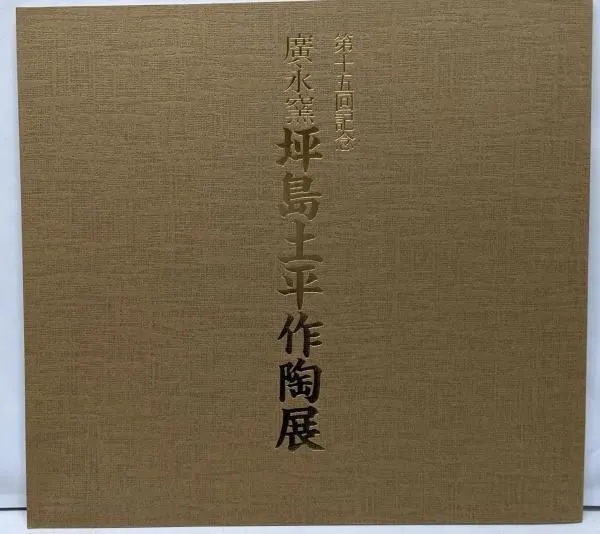 第十五回記念
廣永窯坪島土平作陶展